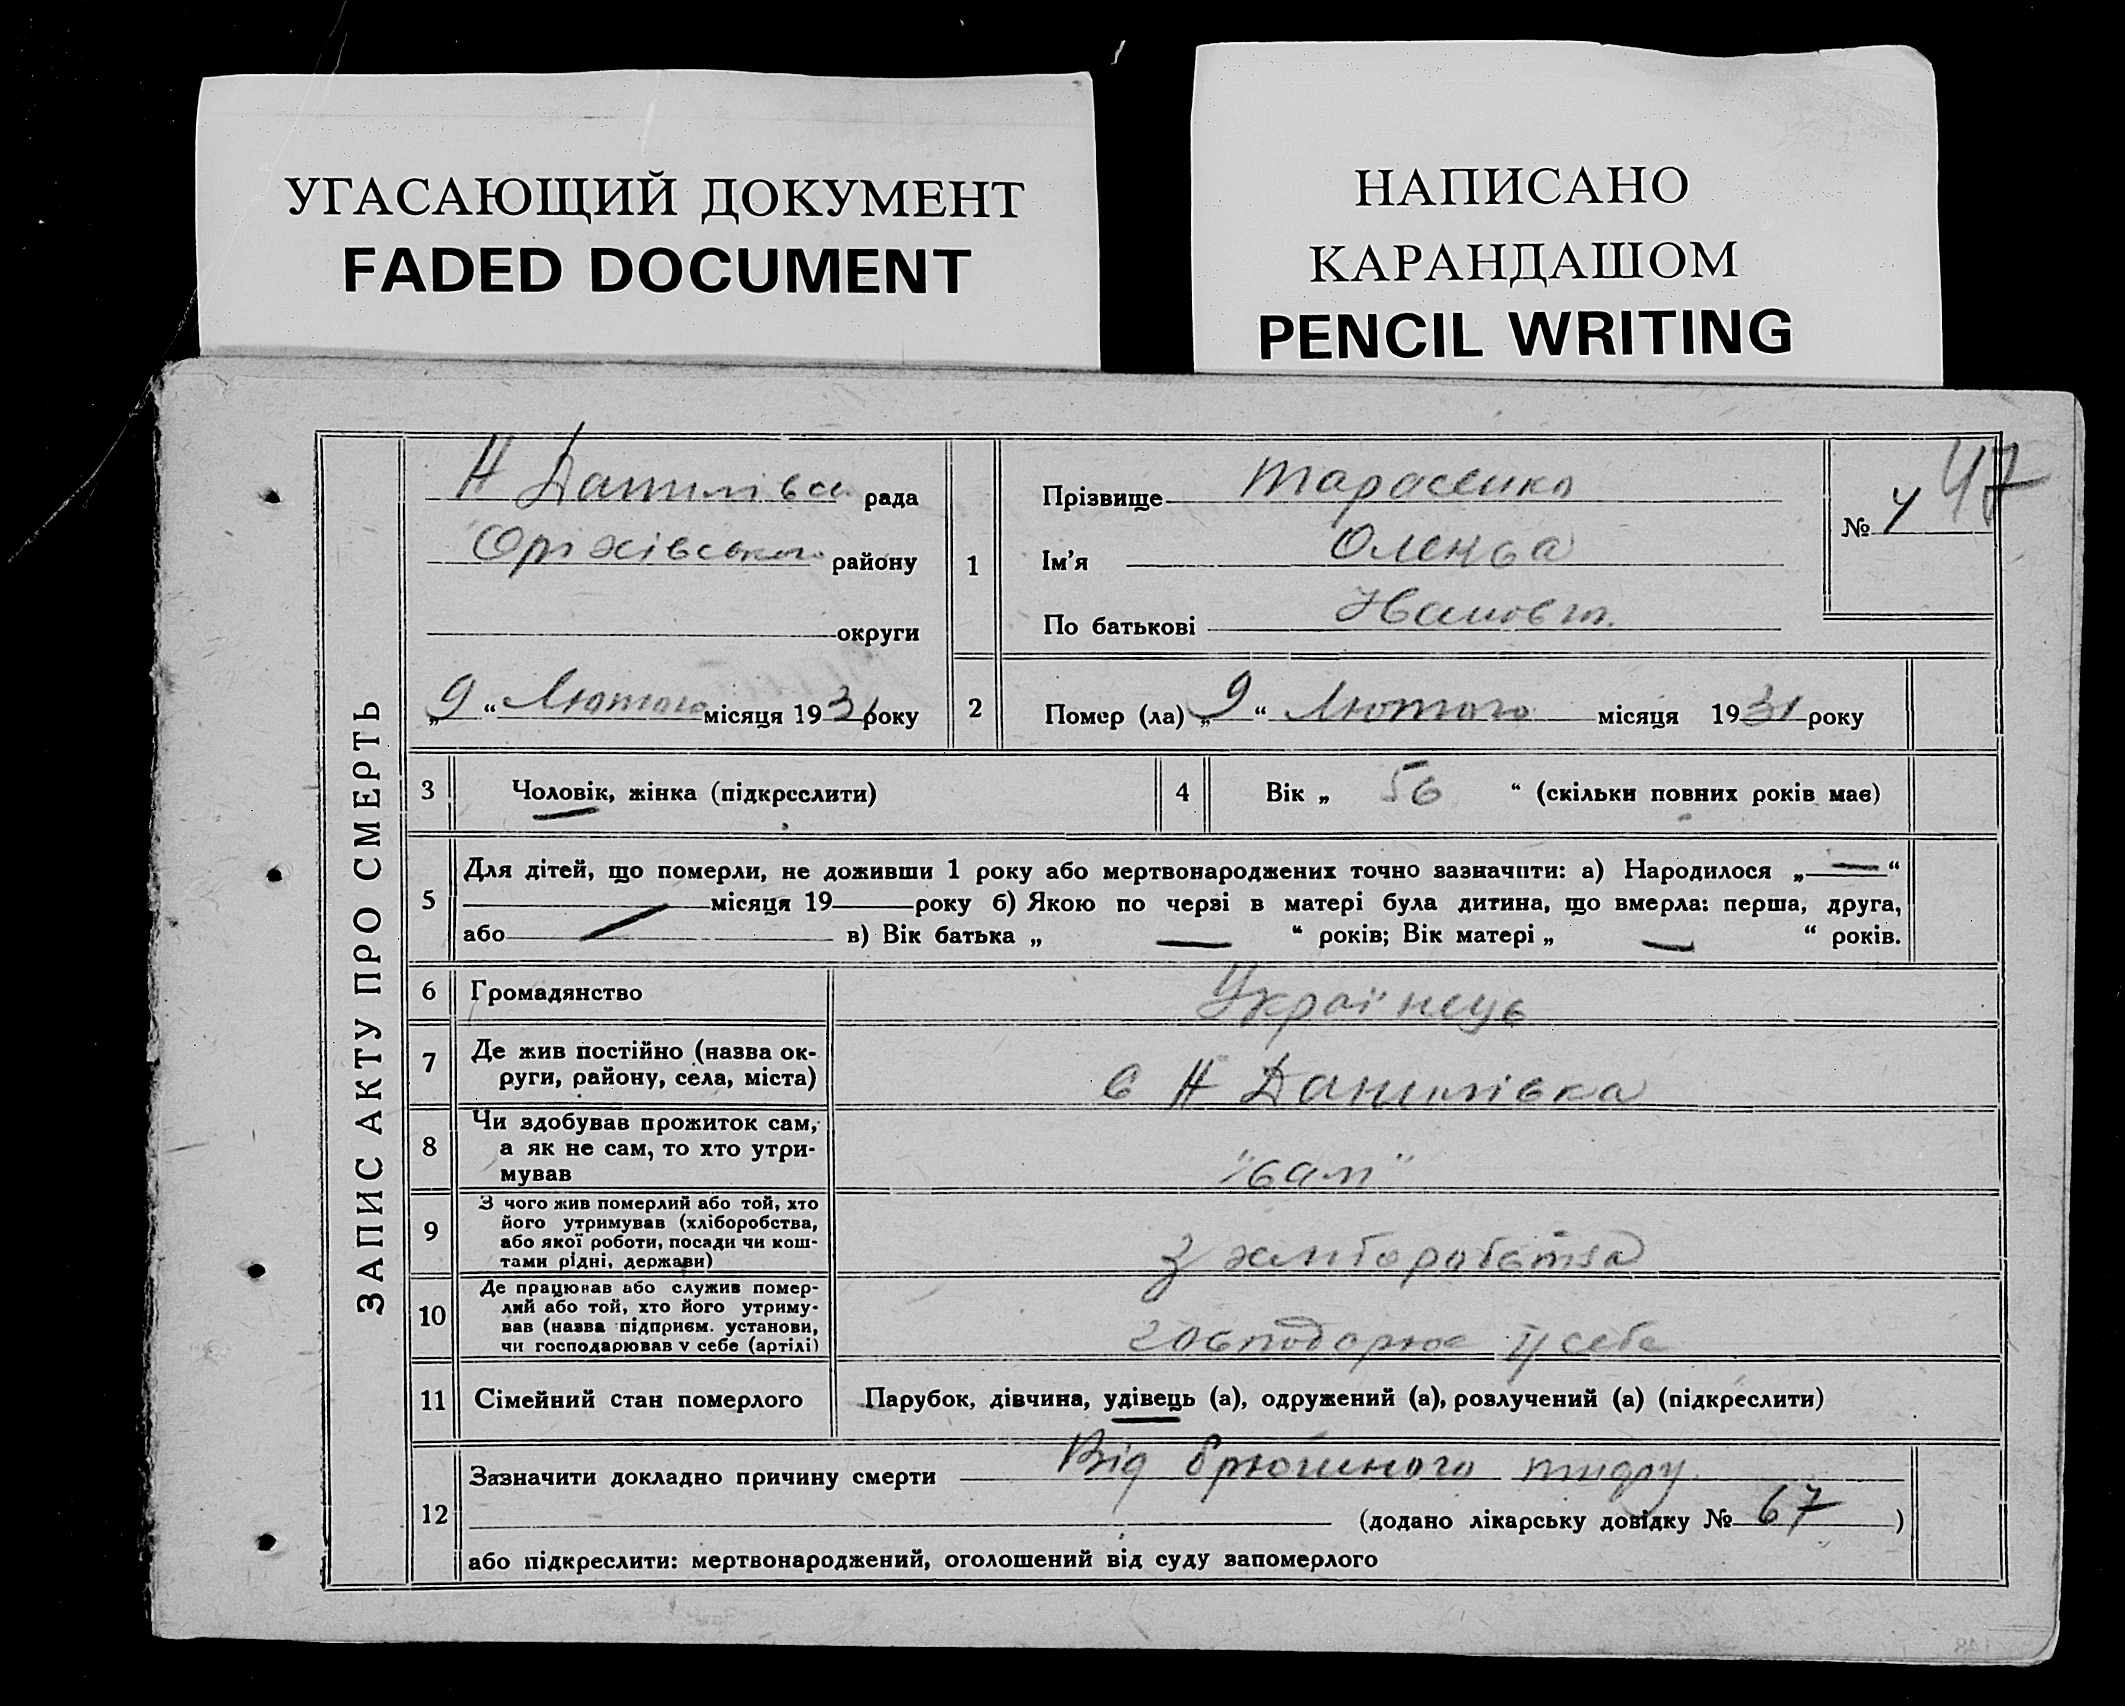 УГАСАЮЩИЙ ДОКУМЕНТ
FADED DOCUMENT
НАПИСАНО
КАРАНДАШОМ
PENCIL WRITING
ЗАПИС АКТУ ПРО СМЕРТЬ
Н Данилівсь рада
Оріхівського району
округи
„9“ Лютого місяця 1931 року
1
Прізвище Тарасенко
Ім'я
По батькові Іванович
№ 4 47
2
Помер (ла) „9“ Лютого місяця 1931 року
3 Чоловік, жінка (підкреслити)
4 Вік „ 56 “ (скільки повних років має)
5
Для дітей, що померли, не доживши 1 року або мертвонароджених точно зазначити: а) Народилося „—“
місяця 19 року б) Якою по черзі в матері була дитина, що вмерла: перша, друга,
або — в) Вік батька „ — “ років; Вік матері „ — “ років.
6 Громадянство Українець
7 Де жив постійно (назва ок-
руги, району, села, міста) с Н Данилівка
8 Чи здобував прожиток сам,
а як не сам, то хто утри-
мував "сам"
9 З чого жив померлий або той, хто
його утримував (хліборобства,
або якої роботи, посади чи кош-
тами рідні, держави) З хліборобства
10 Де працював або служив помер-
лий або той, хто його утриму-
вав (назва підприєм. установи,
чи господарював у себе (артілі) господарює у себе
11 Сімейний стан померлого Парубок, дівчина, удівець (а), одружений (а), розлучений (а) (підкреслити)
12
Зазначити докладно причину смерти Від брюшного тифу
(додано лікарську довідку № 67)
або підкреслити: мертвонароджений, оголошений від суду запомерлого